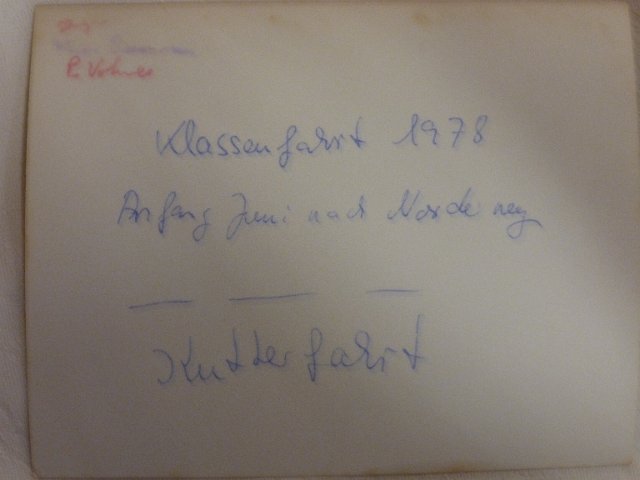 Klassenfahrt 1978
Anfang Juni nach Norderney
Kutterfahrt